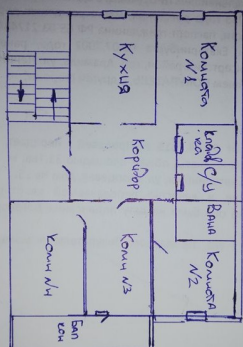 Кухня
Комната
N1
Коридор
Кладов
ка
С/у
Ванна
Комната
N2
Комн N3
Комн N4
Бал
кон